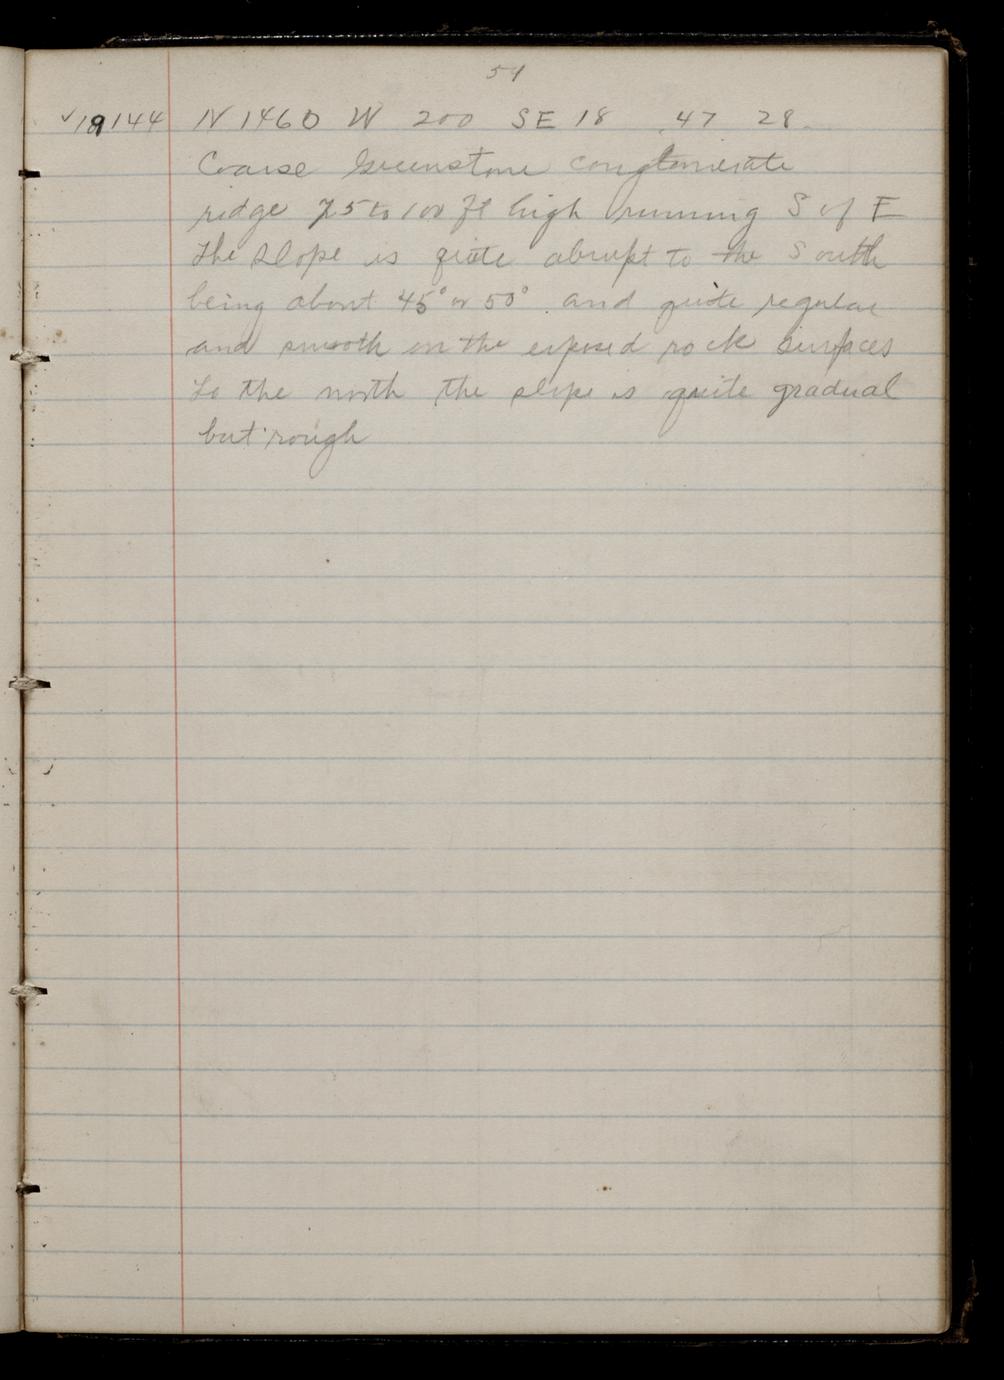 54
✓19144 N 1460 W 200 SE 18 47 28
Coarse Greenstone conglomerate
ridge 75 to 100 ft high running S of E
The slope is quite abrupt to the South
being about 45° or 50° and quite regular
and smooth on the exposed rock surfaces
To the north the slope is quite gradual
but rough